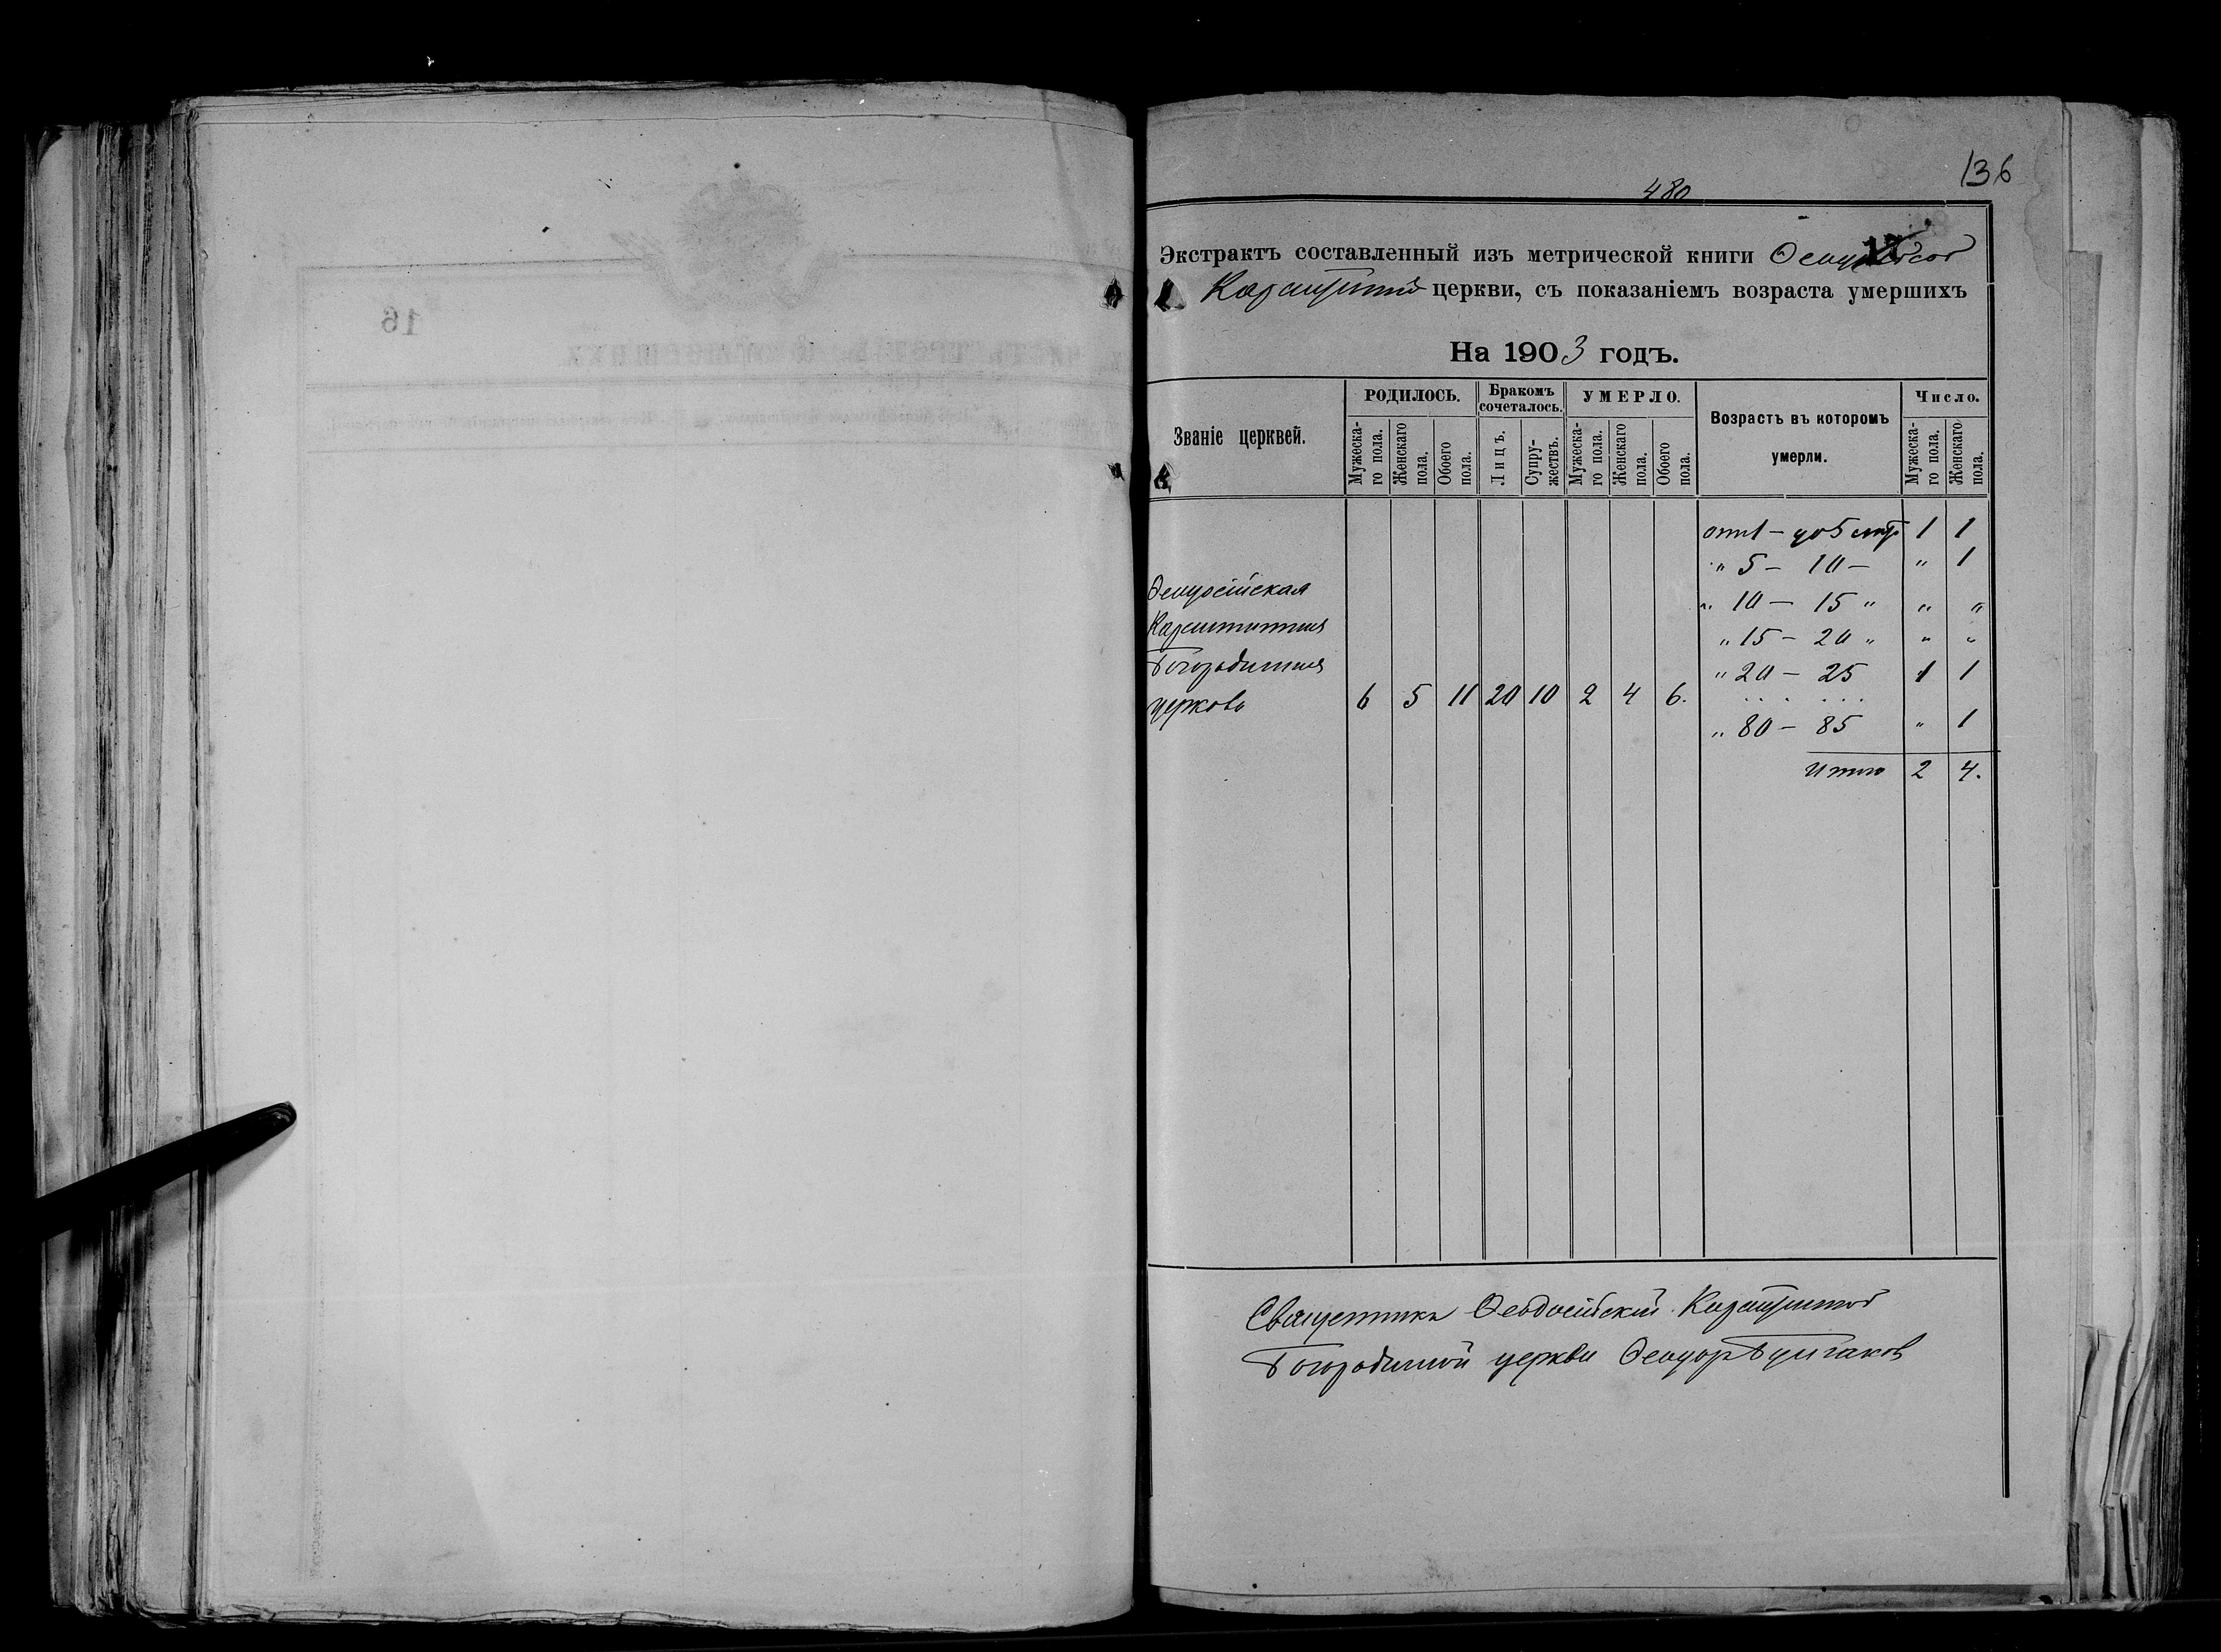 480
136
17
Экстрактъ составленный изъ метрической книги Ѳеодос
Карантинной церкви, съ показаніемъ возраста умершихъ
На 1903 годъ.
Званіе церквей.
РОДИЛОСЬ.
Мужеска-
го пола.
Женскаго
пола.
Обоего
пола.
Бракомъ
сочеталось.
Лицъ.
Супру-
жествъ.
УМЕРЛО.
Мужеска-
го пола.
Женскаго
пола.
Обоего
пола.
Возрастъ въ которомъ
умерли.
Число.
Мужеска-
го пола.
Женскаго
пола.
отъ 1 — до 5 лѣтъ 1 1
„ 5 — 10 — „ 1
„ 10 — 15 „ „ „
„ 15 — 20 „ „ „
„ 20 — 25 1 1
. . . . . .
„ 80 — 85 „ 1
Итого 2 4.
Ѳеодосійская
Карантинная
Богородичная
церковь 6 5 11 20 10 2 4 6.
Священникъ Ѳеодосійской Карантинной
Богородичной церкви Ѳеодоръ
16
ЧАСТЬ ТРЕТЬЯ, О УМЕРШИХЪ